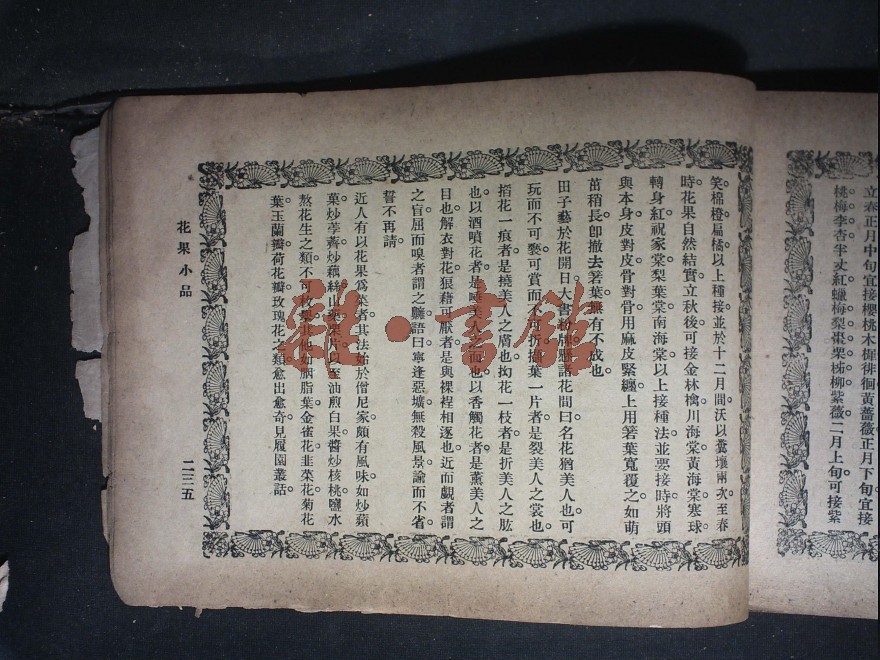 立春正月中旬宜接櫻桃木樨徘徊黃薔薇正月下旬宜接
桃梅李杏半丈紅蠟梅梨棗栗柹柳紫薇二月上旬可接紫
笑棉橙扁橘。以上種接並於十二月間沃以糞壤兩次至春
時花果自然結實立秋後可接金林檎川海棠黃海棠寒球
轉身紅祝家棠梨葉棠南海棠以上接種法並要接時將頭
與本身皮對皮骨對骨用麻皮緊纏上用箬葉寬覆之如萌
茁稍長卽撤去箬葉無有不成也。
田子藝於花開日大書粉牌懸諸花間曰名花猶美人也可
玩而不可褻可賞而不可折擷葉一片者是裂美人之裳也。
掐花一痕者是撓美人之膚也拗花一枝者是折美人之肱
也以酒噴花者是唾美人之面也以香觸花者是薰美人之
目也解衣對花狼藉可厭者是與裸裎相逐也近而覷者謂
之盲屈而嗅者謂之齅語曰寧逢惡壙無殺風景諭而不省
誓不再請。
近人有以花果爲菜者其法始於僧尼家頗有風味如炒蘋
菓炒荸薺炒藕絲山藥栗片以至油煎白果醬炒核桃鹽水
熬花生之類不可枚舉其他如胭脂葉金雀花韭菜花菊花
葉玉蘭瓣荷花瓣玫瑰花之類愈出愈奇見履園叢話。
花果小品
二三五
雜·书館